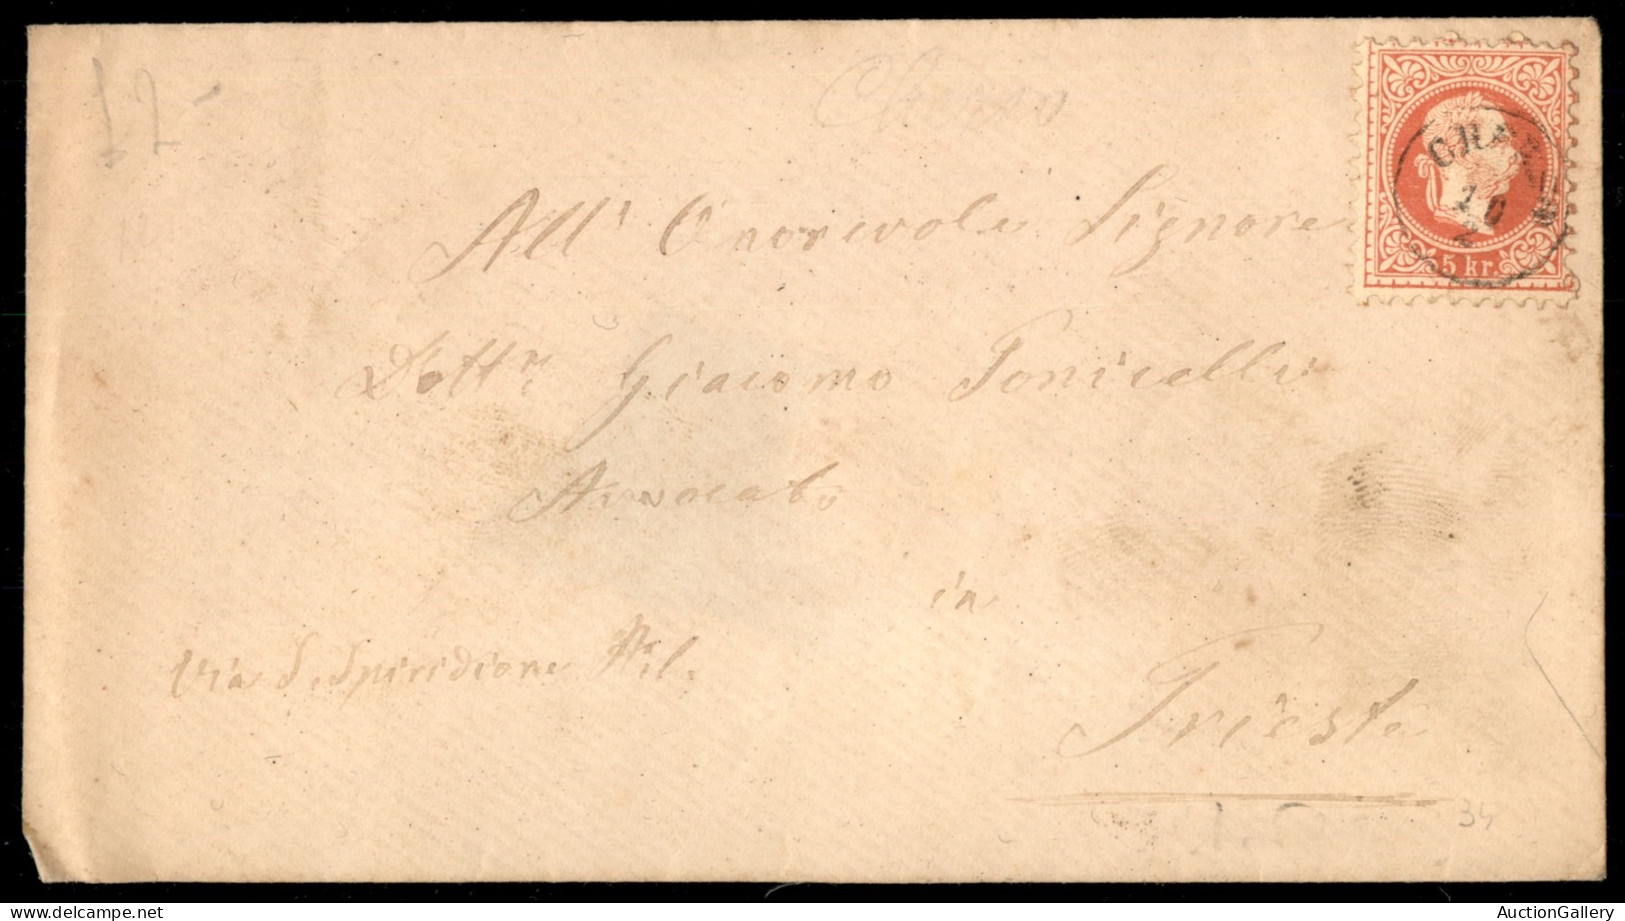 12-
Cherso
CHERSO
10
2
5 kr.
All' Onorevole Signore
Dottr. Giacomo Tonicelli
Avvocato
in
Via S. Spiridione
Trieste
34
AuctionGallery